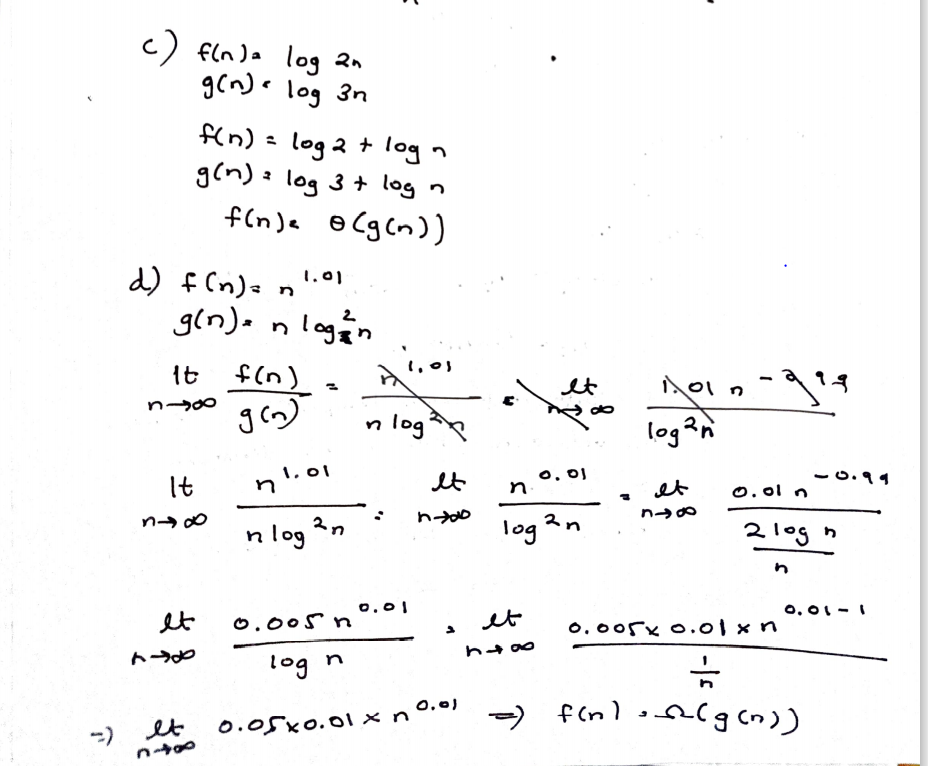 c) f(n) = log 2n
g(n) = log 3n
f(n) = log 2 + log n
g(n) = log 3 + log n
f(n) = θ(g(n))
d) f(n) = n^1.01
g(n) = n log^2 n
lt n→∞ f(n)/g(n) = n^1.01 / n log^2 n = lt n→∞ 1.01 n^-0.99 / log^2 n
lt n→∞ n^1.01 / n log^2 n = lt n→∞ n^0.01 / log^2 n = lt n→∞ 0.01 n^-0.99 / (2 log n / n)
lt n→∞ 0.005 n^0.01 / log n = lt n→∞ 0.005 x 0.01 x n^0.01-1 / (1/n)
=) lt n→∞ 0.05x0.01 x n^0.01 =) f(n) = Ω(g(n))